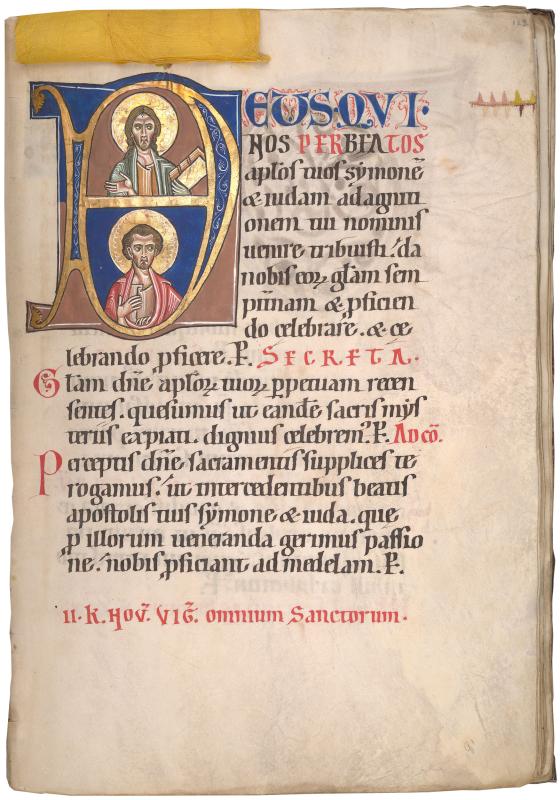 DEUS QUI·
NOS PER BEATOS
aplōs tuos symonē
& iudam ad agniti
onem tui nominis
uenire tribuisti. da
nobis eoꝝ glām sem
pit̄nam & ꝓficien
do celebrare. & ce
lebrando ꝓficere. P. SECRETA.
Glām dn̄e aplōꝝ tuoꝝ ꝑpetuam recen
sentes. quesumus ut eande sacris mys
teriis expiati. dignius celebrem. P. AD CŌ.
Perceptis dn̄e sacramentis supplices te
rogamus. ut intercedentibus beatis
apostolis tuis symone & iuda. que
ꝓ illorum ueneranda gerimus passio
ne. nobis ꝓficiant ad medelam. P.
II·K. NOV̄. VIḠ. omnium Sanctorum·